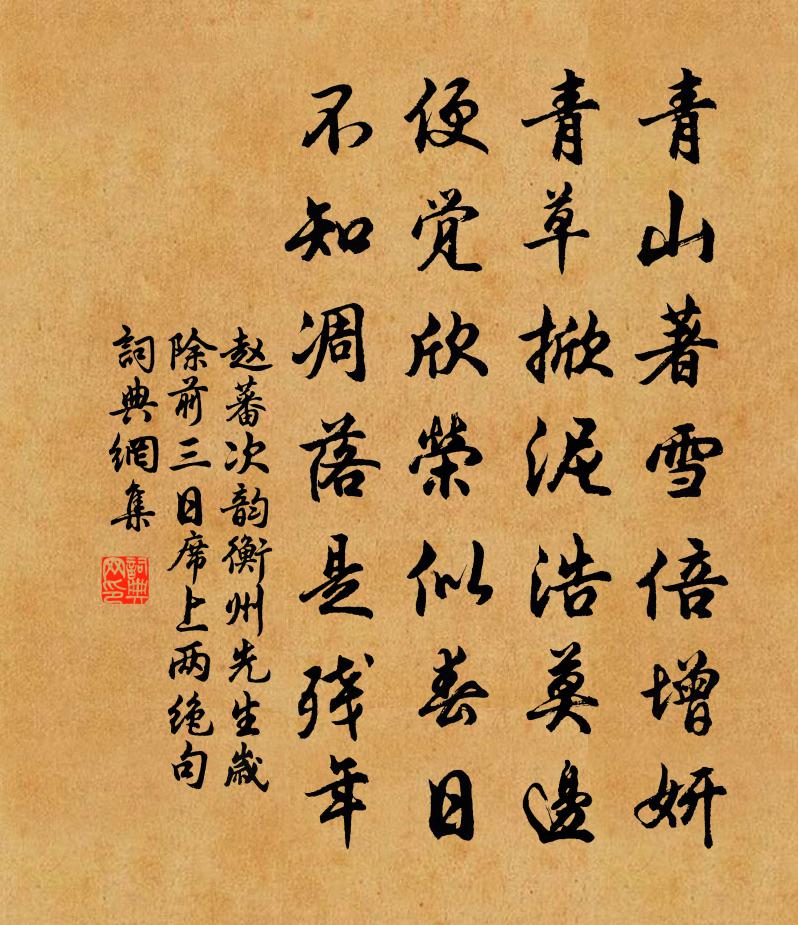 青山著雪倍增妍
青草掀泥浩莫邊
便觉欣榮似春日
不知凋落是残年
赵蕃次韵衡州先生歲
除前三日席上两绝句
詞典網集
詞典
网印